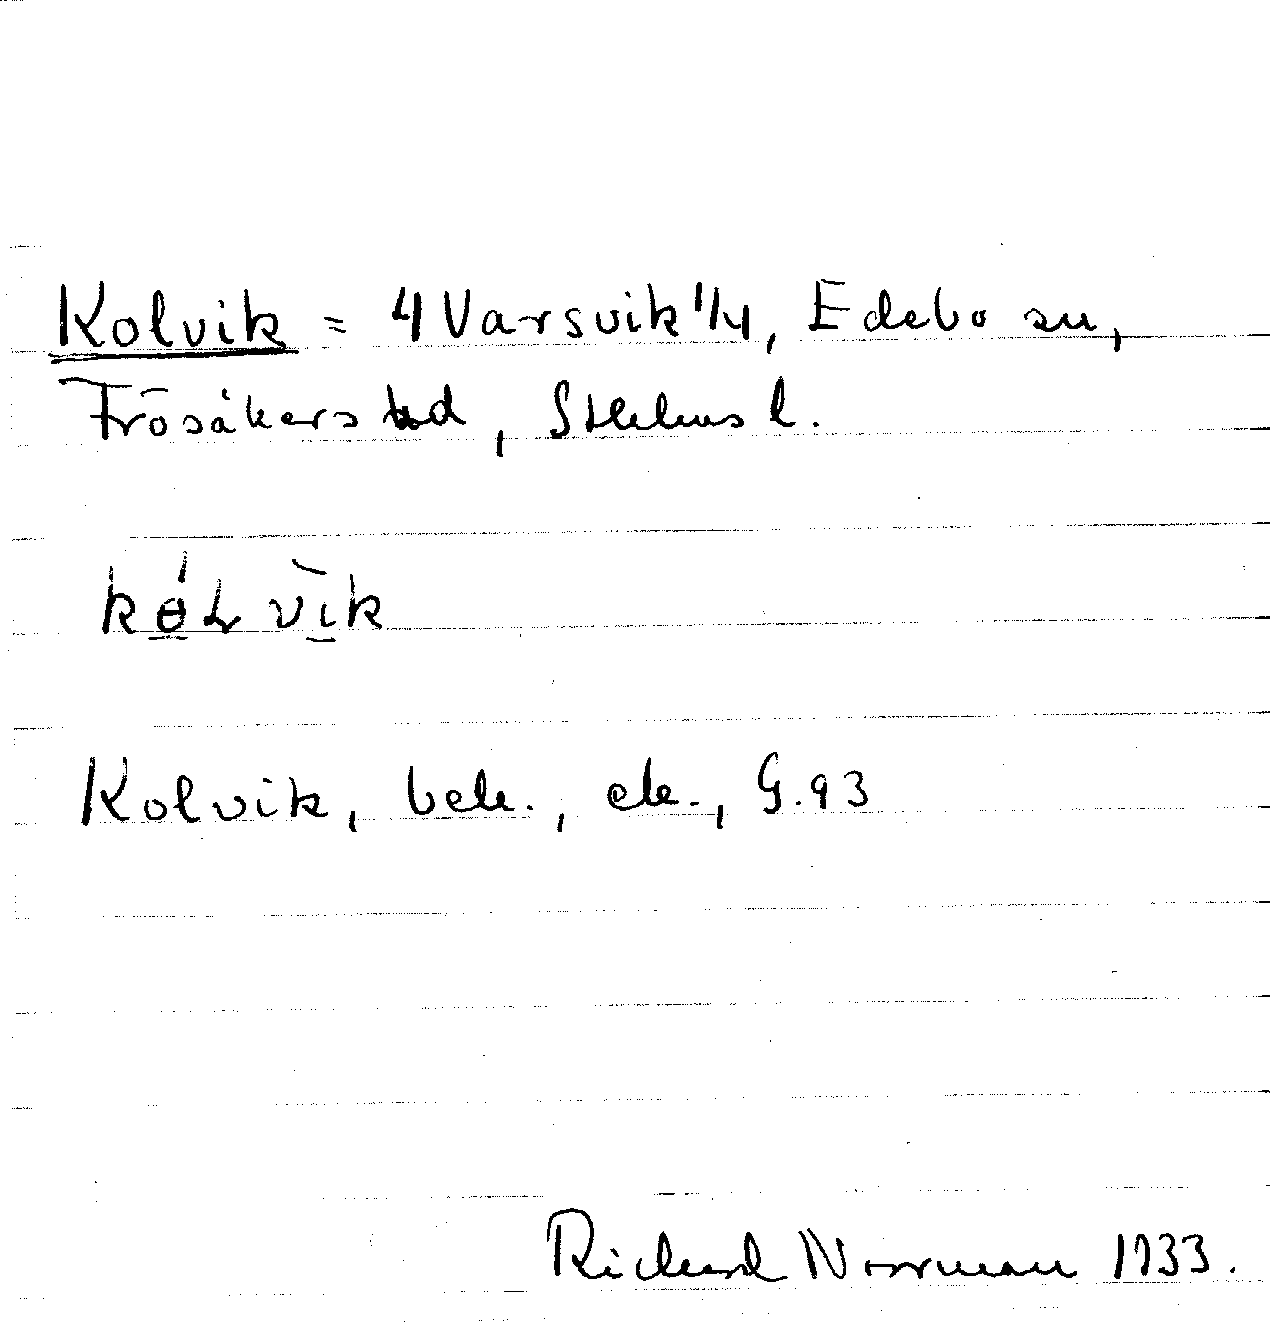 Kolvik = 4 Varsvik 1/4, Edebo sn,
Frösåkers hd, Sthlms l.
kɵ́ɫvìk
Kolvik, bek., ek., G. 93
Richard Norrman 1933.